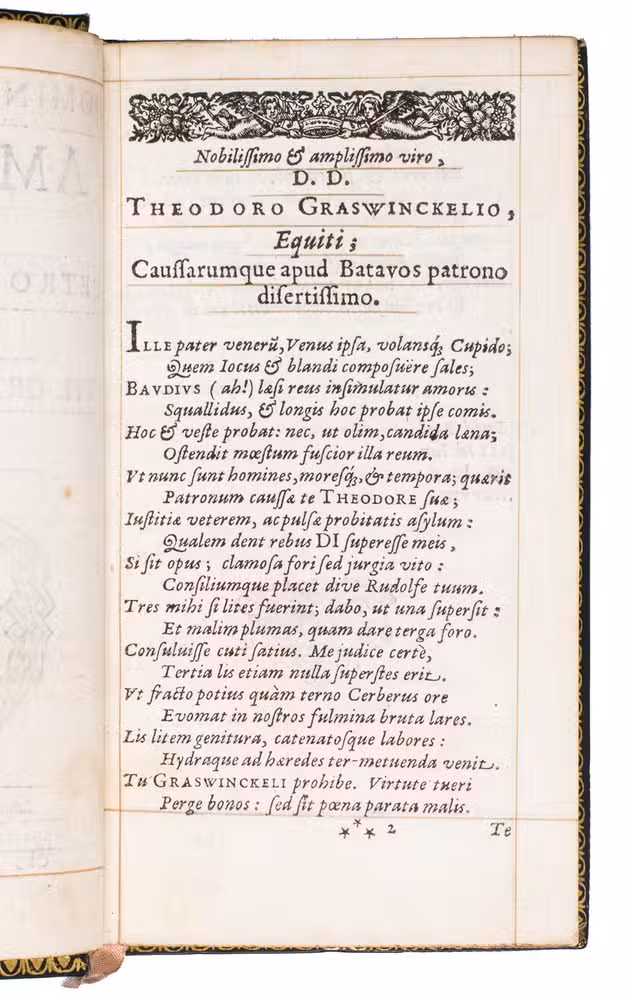 Nobilissimo & amplissimo viro,
D. D.
THEODORO GRASWINCKELIO,
Equiti;
Caussarumque apud Batavos patrono
disertissimo.
ILLE pater venerũ, Venus ipsa, volansq́; Cupido;
Quem Iocus & blandi composuëre sales;
BAVDIVS (ah!) læsi reus insimulatur amoris:
Squallidus, & longis hoc probat ipse comis.
Hoc & veste probat: nec, ut olim, candida læna;
Ostendit mœstum fuscior illa reum.
Vt nunc sunt homines, moresq́;, & tempora; quæris
Patronum caussæ te THEODORE suæ;
Iustitiæ veterem, ac pulsæ probitatis asylum:
Qualem dent rebus DI superesse meis,
Si sit opus; clamosa fori sed jurgia vito:
Consiliumque placet dive Rudolfe tuum.
Tres mihi si lites fuerint; dabo, ut una supersit:
Et malim plumas, quam dare terga foro.
Consuluisse cuti satius. Me judice certè,
Tertia lis etiam nulla superstes erit.
Vt fracto potius quàm terno Cerberus ore
Evomat in nostros fulmina bruta lares.
Lis litem genitura, catenatosque labores:
Hydraque ad hæredes ter-metuenda venit.
Tu GRASWINCKELI prohibe. Virtute tueri
Perge bonos: sed sit pœna parata malis.
*** 2 Te